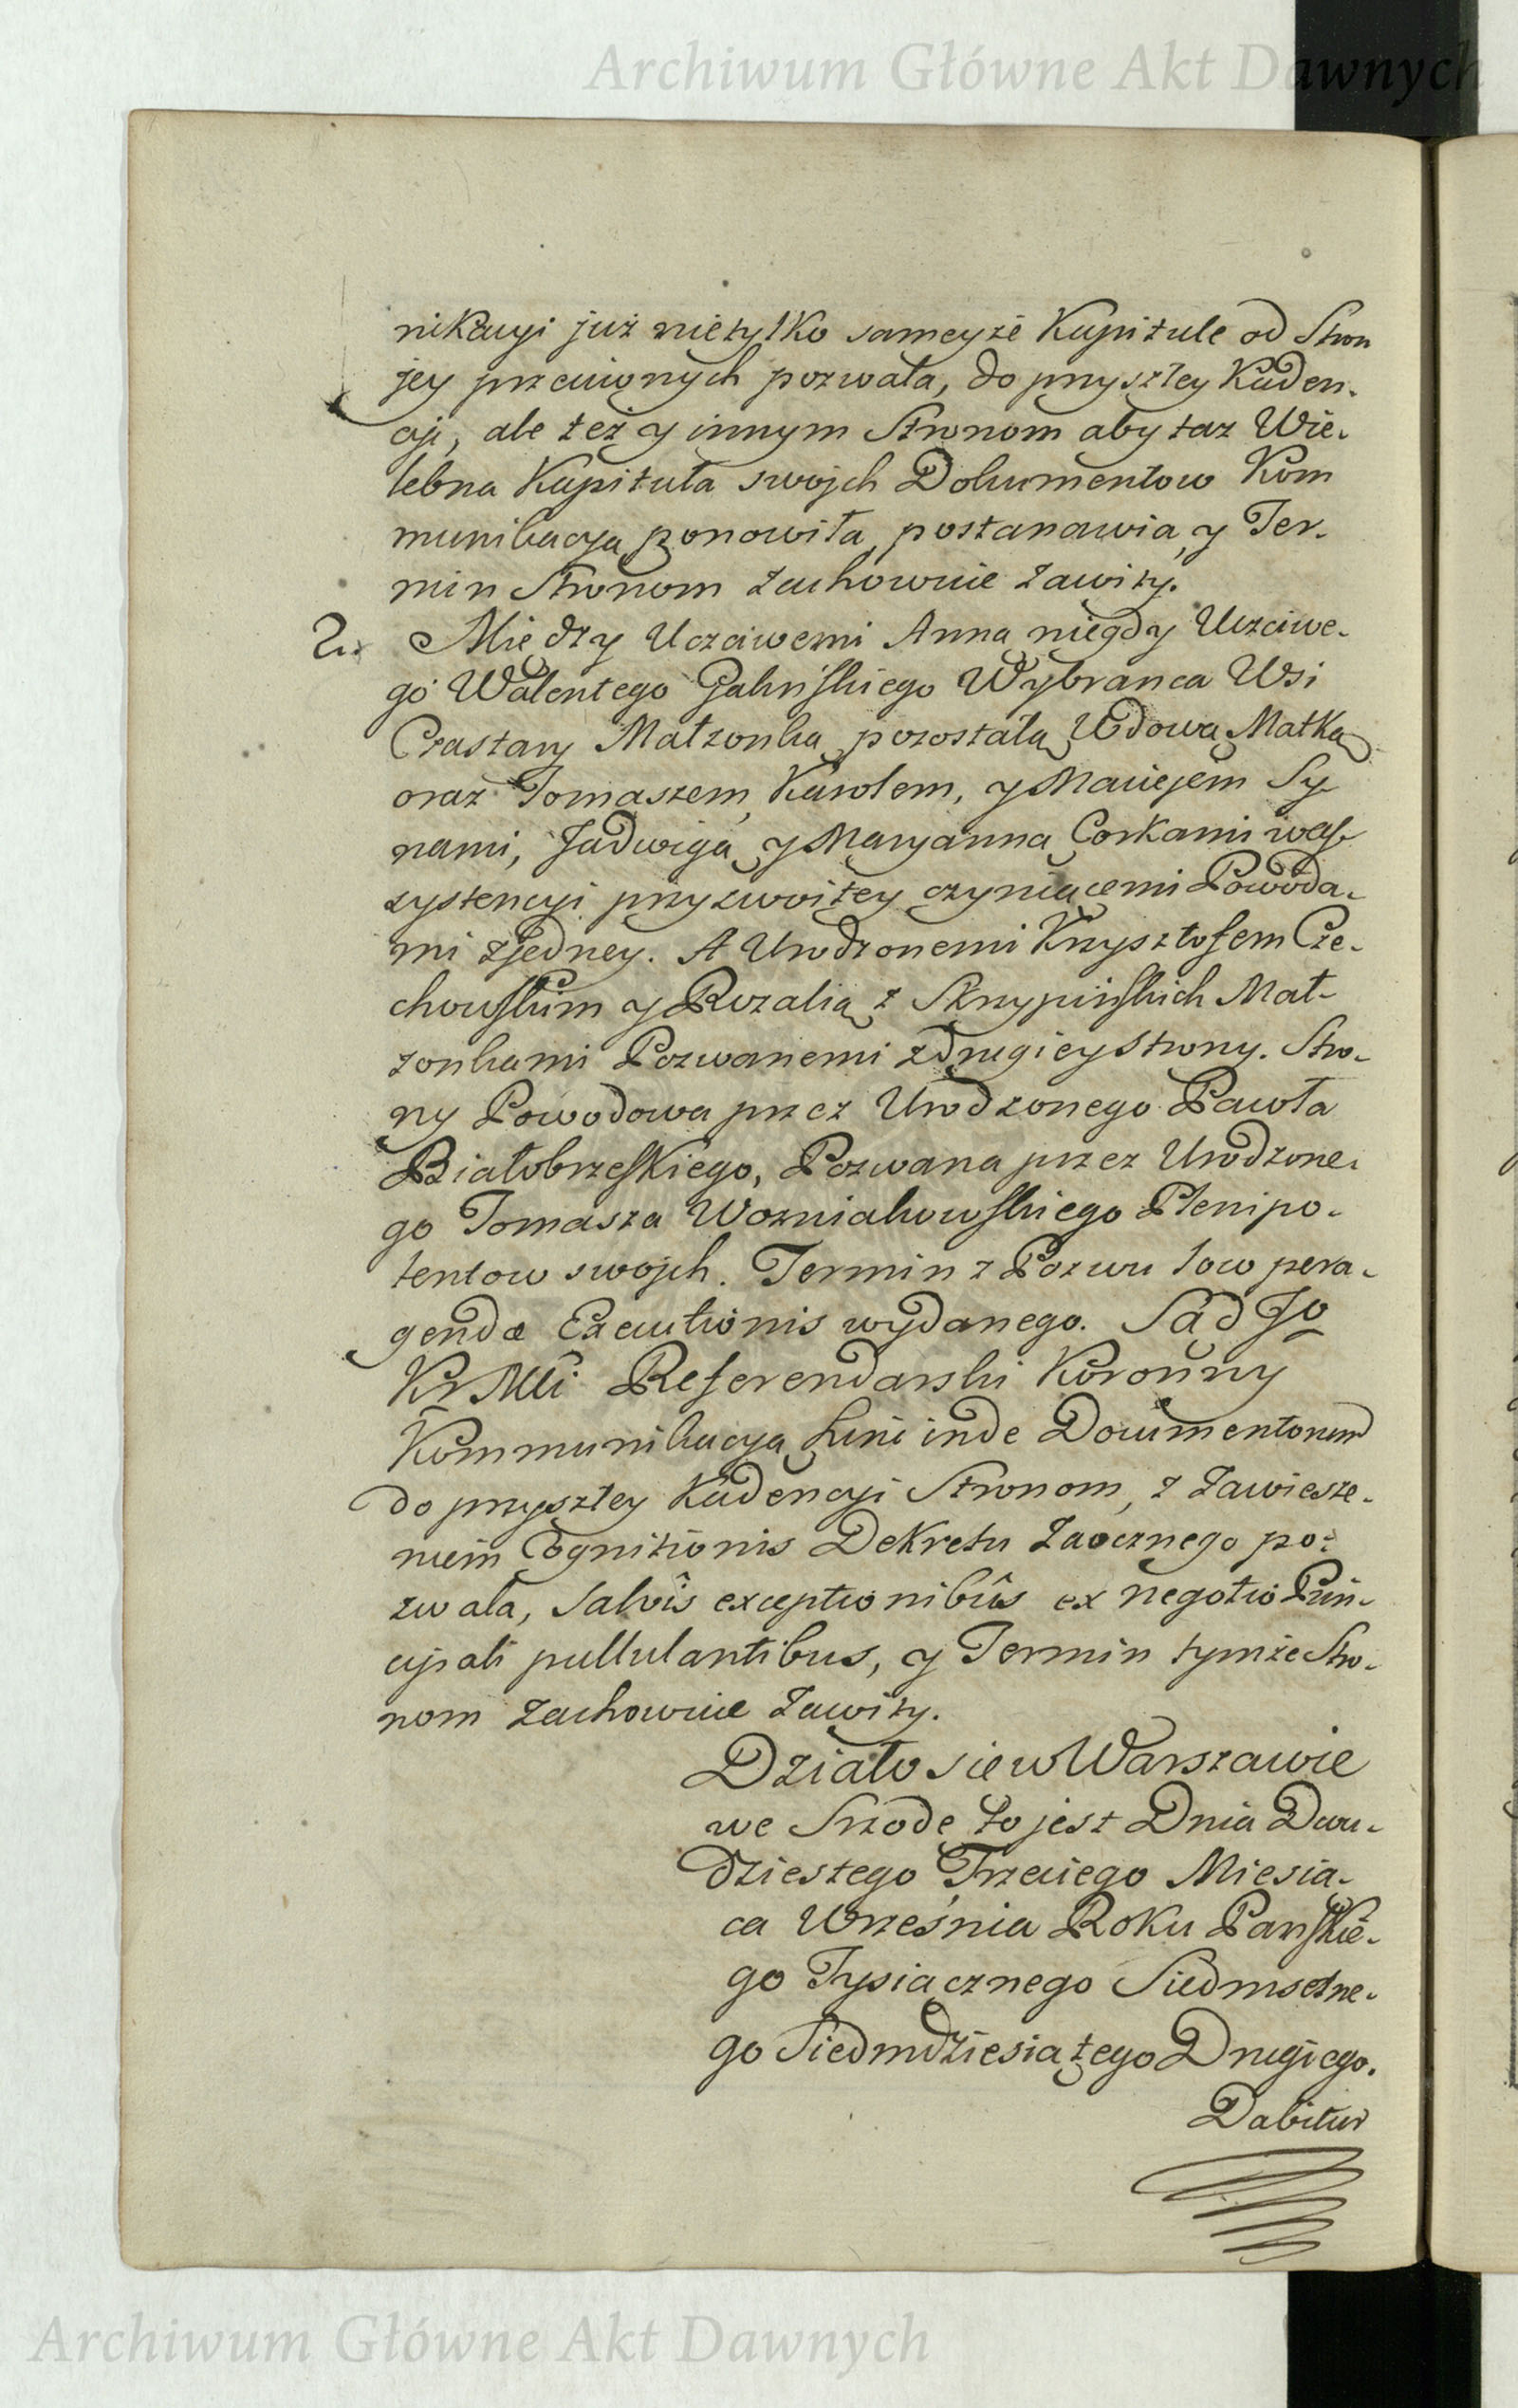 Archiwum Główne Akt Dawnych
nikacyi już nietylko sameyże Kapitule od Stron
jey przeciwnych pozwala, do przyszłey Kaden-
cji, ale też y innym Stronom aby taz Wie-
lebna Kapituła swojch Dokumentow Kom
munikacyą ponowiła, postanawia, y Ter-
min Stronom zachownie zawity.
Między Uczciwemi Anną niegdy Uczciwe-
go Walentego Galińskiego Wybranca Wsi
Czastary Małzonką pozostałą Wdową Matką
oraz Tomaszem, Karolem, y Maciejem Sy-
nami, Jadwigą y Maryanną Corkami w as-
systencyi przyzwoitey czyniącemi Powoda-
mi zjedney. A Urodzonemi Krzysztofem Cze-
chowskim y Rozalią z Skrzypińskich Mał-
zonkami Pozwanemi zdrugiey Strony. Stro-
ny Powodowa przez Urodzonego Pawła
Białobrzeskiego, Pozwana przez Urodzone-
go Tomasza Wozniakowskiego Plenipo-
tentow swojch. Termin z Pozwu tow pera-
gendæ Executionis wydanego. Sąd Jo
Kr Mci Referendarski Koronny
Kommunikacyą hinc inde Documentorum
do przyszłey Kadencyi Stronom, z Zawiesze-
niem Cognitionis Dekretu Zaocznego po-
zwala, Salvis exceptionibus ex negotio Prin-
cipali pullulantibus, y Termin tymże Stro-
nom zachownie zawity.
Działo sie w Warszawie
we Srzodę to jest Dnia Dwu-
dziestego Trzeciego Miesią-
ca Września Roku Pańskie-
go Tysiącznego Siedmsetne-
go Siedmdziesiątego Drugiego.
Dabitur
Archiwum Główne Akt Dawnych